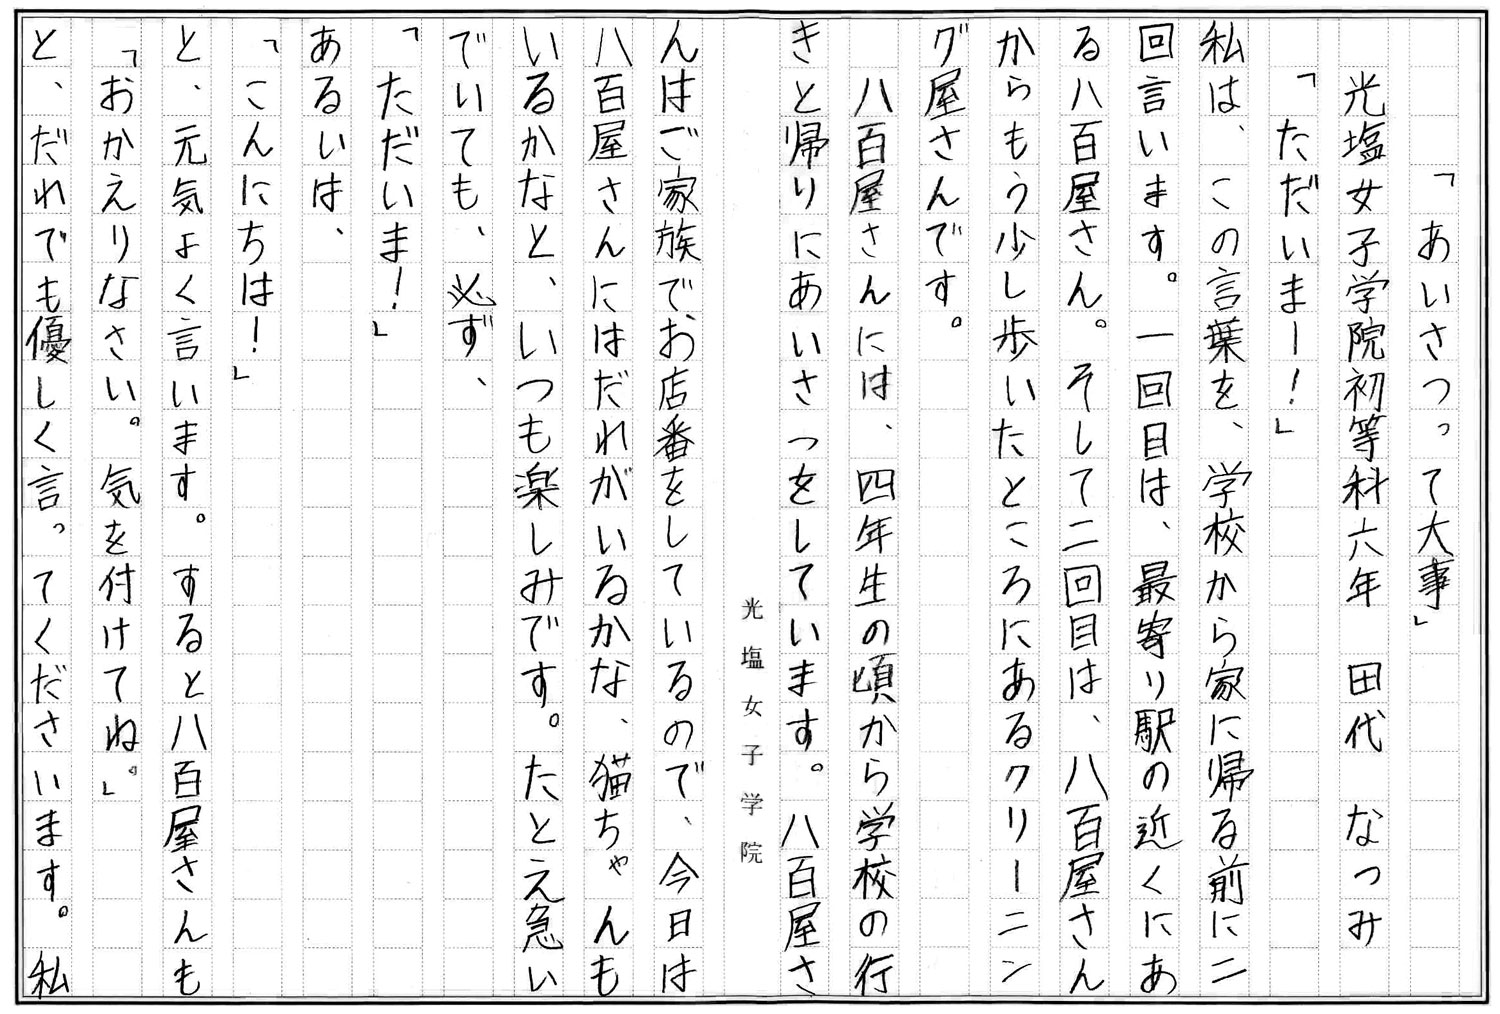 「あいさつって大事」
光塩女子学院初等科六年　田代　なつみ
「ただいまー！」
私は、この言葉を、学校から家に帰る前に二
回言います。一回目は、最寄り駅の近くにあ
る八百屋さん。そして二回目は、八百屋さん
からもう少し歩いたところにあるクリーニン
グ屋さんです。
八百屋さんには、四年生の頃から学校の行
きと帰りにあいさつをしています。八百屋さ
光塩女子学院
んはご家族でお店番をしているので、今日は
八百屋さんにはだれがいるかな、猫ちゃんも
いるかなと、いつも楽しみです。たとえ急い
でいても、必ず、
「ただいま！」
あるいは、
「こんにちは！」
と、元気よく言います。すると八百屋さんも
「おかえりなさい。気を付けてね。」
と、だれでも優しく言ってくださいます。私